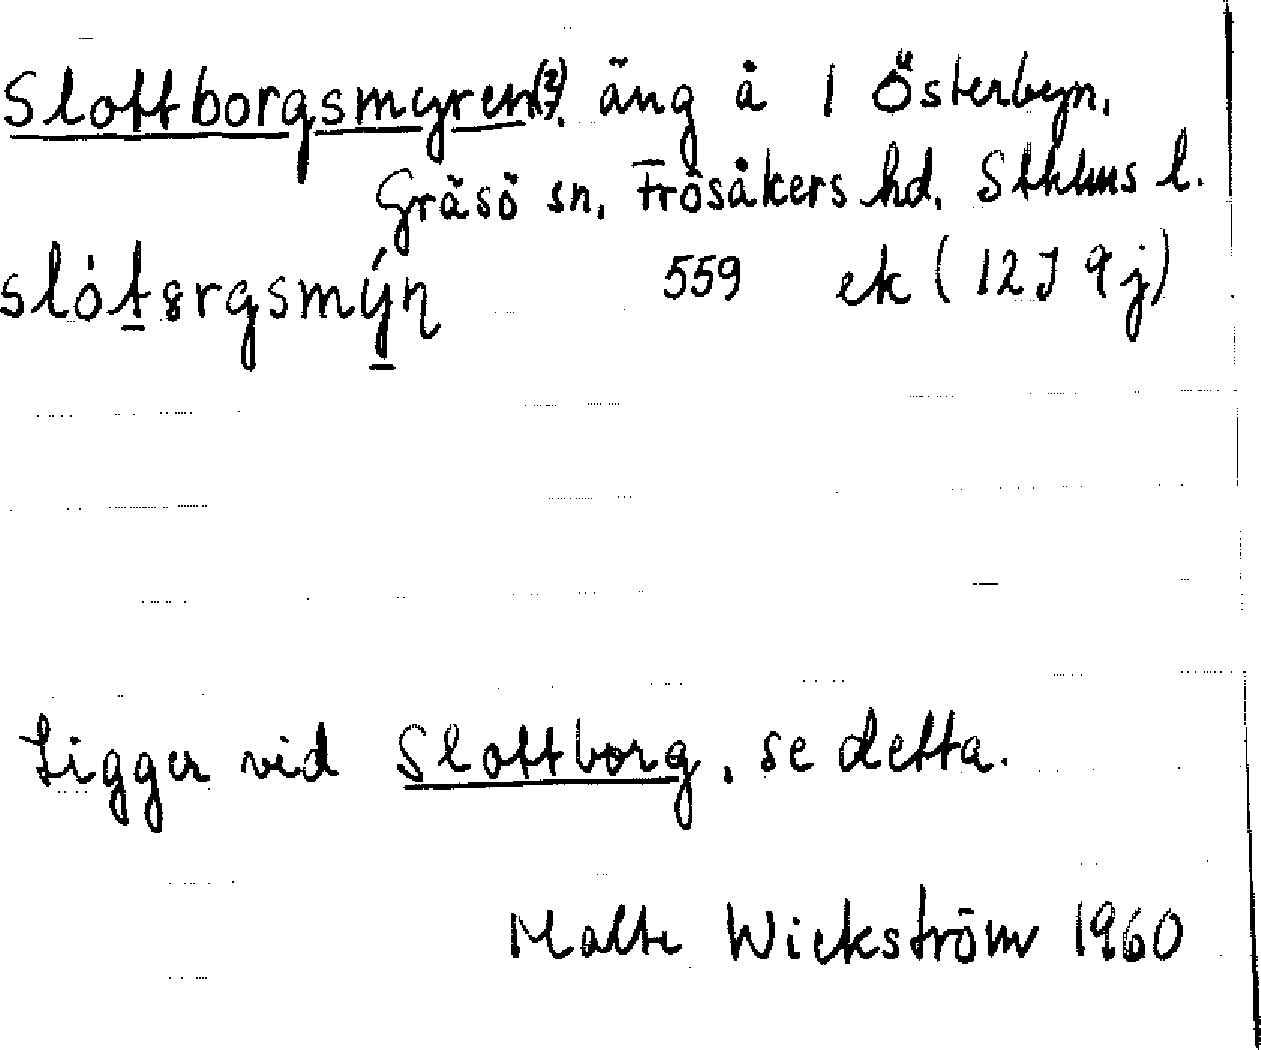 Slottborgsmyren(?). äng å 1 Österbyn.
Gräsö sn. Frösåkers hd. Sthlms l.
slót̲ərgsmý̲n 559 ek (12J 9j)
Ligger vid Slottborg, se detta.
Malte Wickström 1960